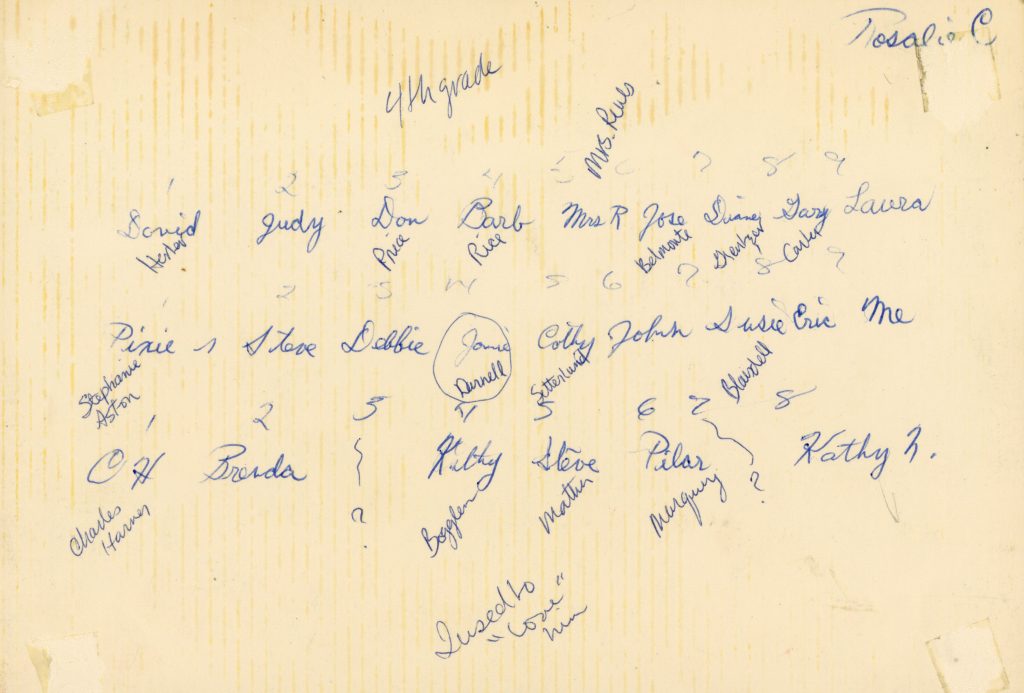 Rosalie C
4th grade
Mrs. Reals
1 2 3 4 5 6 7 8 9
David Judy Don Barb Mrs R Jose Diane Gary Laura
Price Rice Belmonte Carter
1 2 3 4 5 6 7 8 9
Pixie Steve Debbie Jamie Cathy John Susie Eric Me
Stephanie Darnell Setterlund Blaisdell
Aston
1 2 3 4 5 6 7 8
CH Brenda ? Kathy Steve Pilar ? Kathy N.
Charles
I used to
"Love"
him